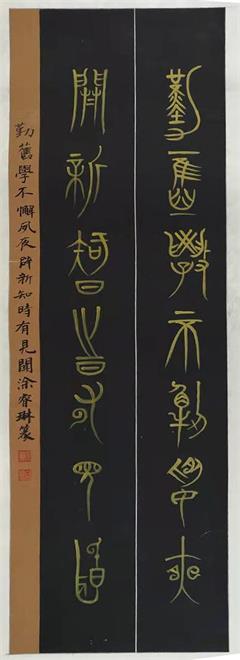 勤舊學不懈夙夜
闢新知時有見聞
勤舊學不懈夙夜辟新知時有見聞涂睿琳篆